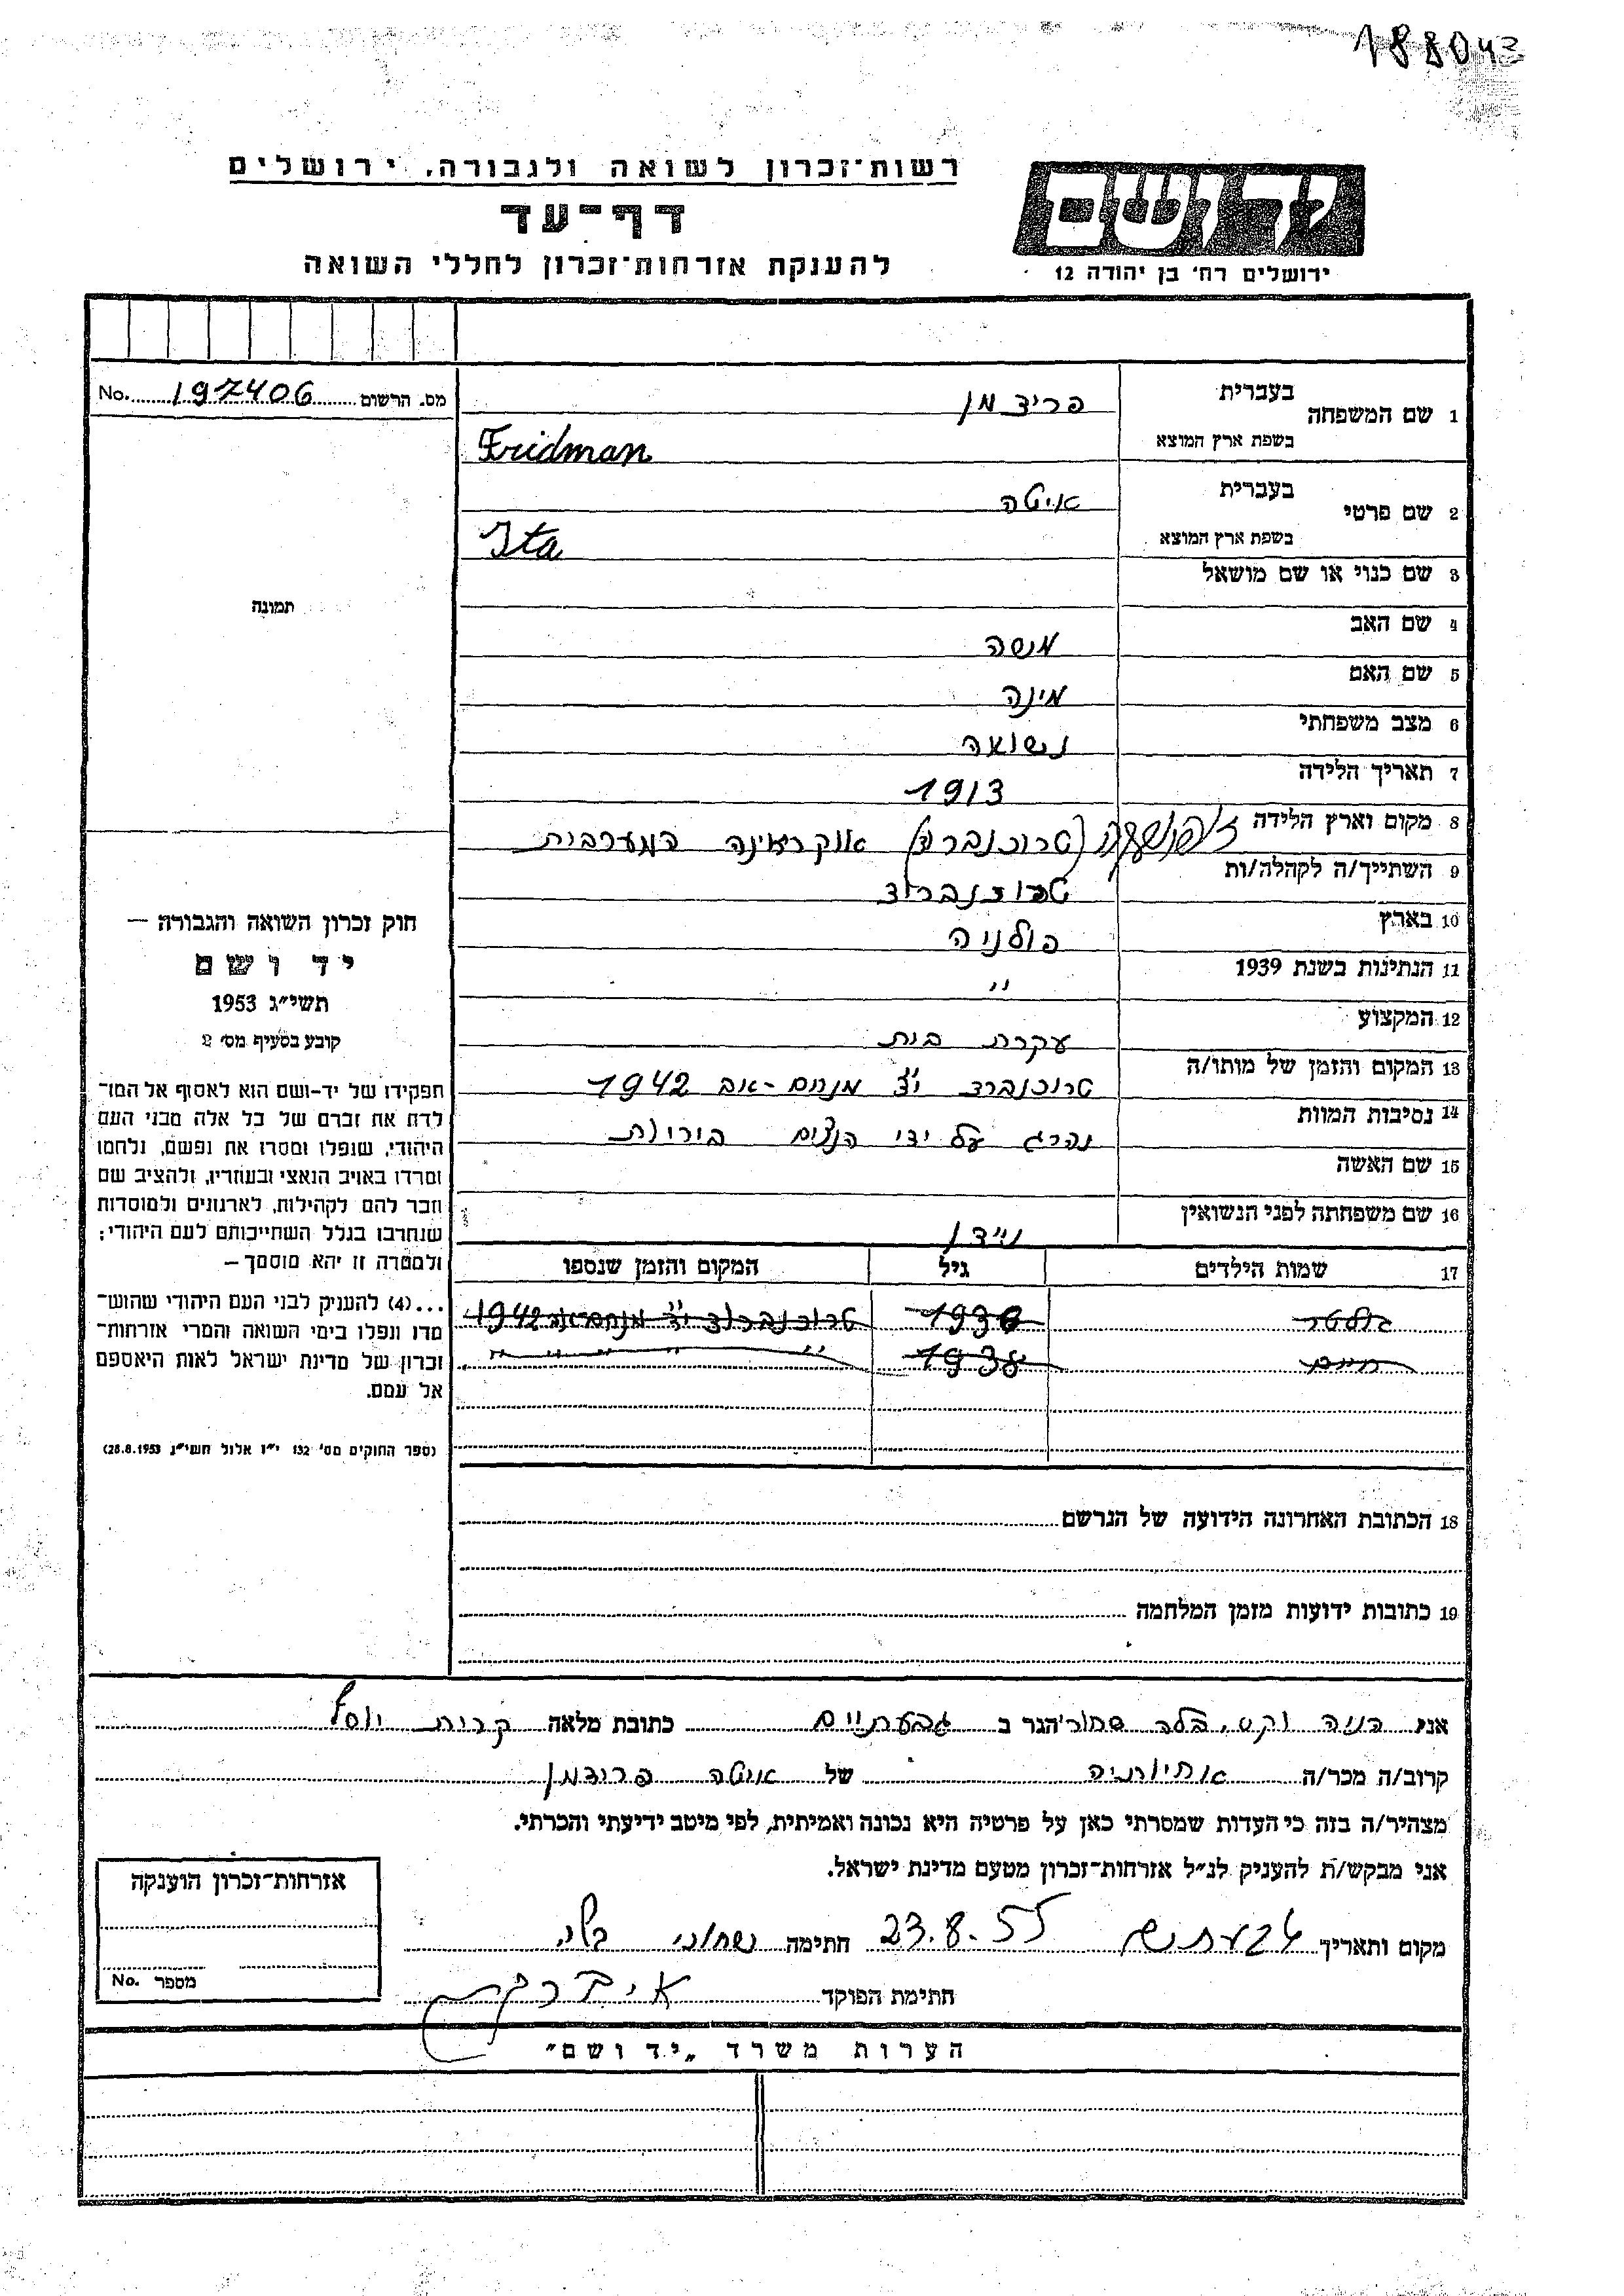 188043
רשות־זכרון לשואה ולגבורה, ירושלים
דף־עד
להענקת אזרחות־זכרון לחללי השואה
יד ושם
ירושלים רח׳ בן יהודה 12
מס. הרשום 197406 No.
תמונה
חוק זכרון השואה והגבורה —
יד ושם
תשי״ג 1953
קובע בסעיף מס׳ 2
תפקידו של יד-ושם הוא לאסוף אל המו־
לדת את זכרם של כל אלה מבני העם
היהודי, שנפלו ומסרו את נפשם, נלחמו
ומרדו באויב הנאצי ובעוזריו, ולהציב שם
וזכר להם לקהילות, לארגונים ולמוסדות
שנחרבו בגלל השתייכותם לעם היהודי;
ולמטרה זו יהא מוסמך —
...(4) להעניק לבני העם היהודי שהוש־
מדו ונפלו בימי השואה והמרי אזרחות־
זכרון של מדינת ישראל לאות היאספם
אל עמם.
(ספר החוקים מס׳ 132 י״ז אלול תשי״ג 28.8.1953)
1 שם המשפחה בעברית פרידמן
בשפת ארץ המוצא Fridman
2 שם פרטי בעברית איטה
בשפת ארץ המוצא Ita
3 שם כנוי או שם מושאל
4 שם האב מנשה
5 שם האם מינה
6 מצב משפחתי נשואה
7 תאריך הלידה 1913
8 מקום וארץ הלידה (טרוכנברוד) אוקראינה המערבית
9 השתייך/ה לקהלה/ות טרוכנברוד
10 בארץ פולניה
11 הנתינות בשנת 1939 ״
12 המקצוע עקרת בית
13 המקום והזמן של מותו/ה טרוכנברוד י״צ מנחם-אב 1942
14 נסיבות המוות נהרג על ידי הנצים ביריות
15 שם האשה
16 שם משפחתה לפני הנשואין
17 שמות הילדים גיל המקום והזמן שנספו
1936 טרוכנברוד י״צ מנחם אב 1942
חיים 1938 ״ ״ ״ ״ ״
18 הכתובת האחרונה הידועה של הנרשם
19 כתובות ידועות מזמן המלחמה
אני הגר ב גבעתיים כתובת מלאה קרית יוסף
קרוב/ה מכר/ה של איטה פרידמן
מצהיר/ה בזה כי העדות שמסרתי כאן על פרטיה היא נכונה ואמיתית, לפי מיטב ידיעתי והכרתי.
אני מבקש/ת להעניק לנ״ל אזרחות־זכרון מטעם מדינת ישראל.
מקום ותאריך גבעתיים 23.8.55 חתימה
חתימת הפוקד
אזרחות־זכרון הוענקה
מספר No.
הערות משרד „יד ושם״